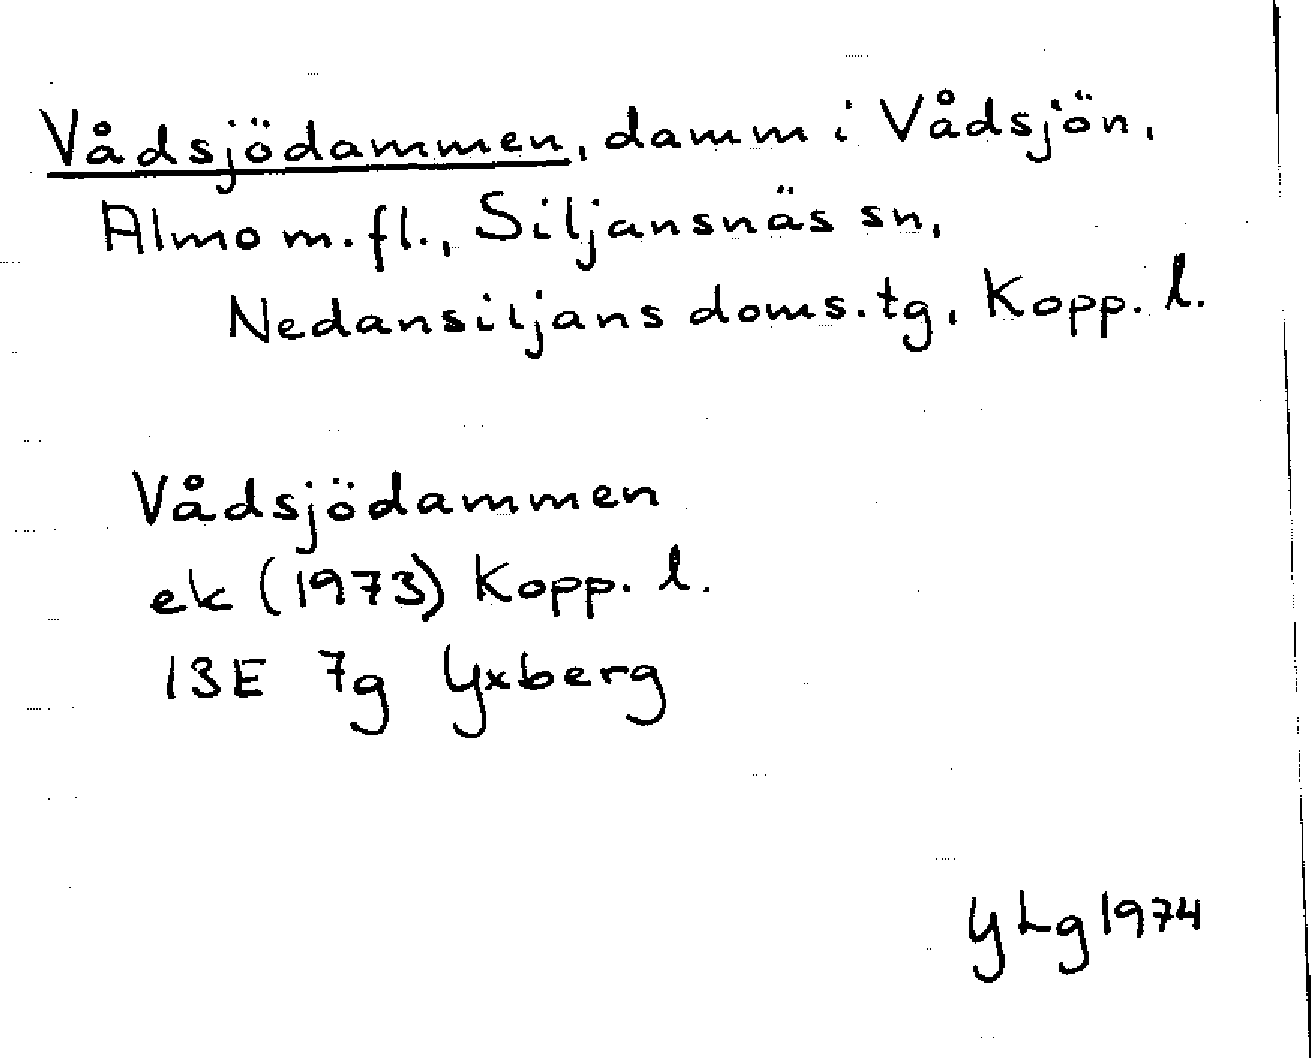 Vådsjödammen, damm i Vådsjön,
Almo m.fl., Siljansnäs sn,
Nedansiljans doms.tg, Kopp. l.
Vådsjödammen
ek (1973) Kopp. l.
13E 7g Yxberg
YLg 1974